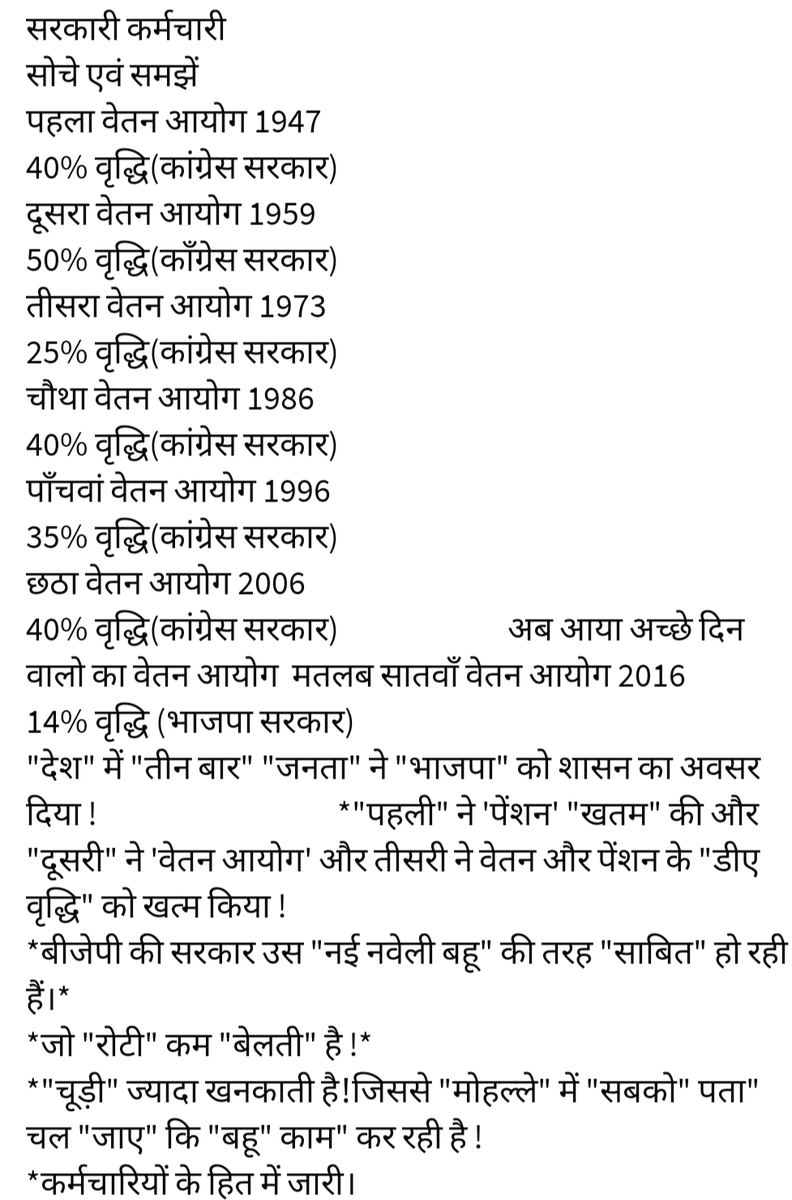 सरकारी कर्मचारी
सोचे एवं समझें
पहला वेतन आयोग 1947
40% वृद्धि(कांग्रेस सरकार)
दूसरा वेतन आयोग 1959
50% वृद्धि(काँग्रेस सरकार)
तीसरा वेतन आयोग 1973
25% वृद्धि(कांग्रेस सरकार)
चौथा वेतन आयोग 1986
40% वृद्धि(कांग्रेस सरकार)
पाँचवां वेतन आयोग 1996
35% वृद्धि(कांग्रेस सरकार)
छठा वेतन आयोग 2006
40% वृद्धि(कांग्रेस सरकार) अब आया अच्छे दिन
वालो का वेतन आयोग मतलब सातवाँ वेतन आयोग 2016
14% वृद्धि (भाजपा सरकार)
"देश" में "तीन बार" "जनता" ने "भाजपा" को शासन का अवसर
दिया ! *"पहली" ने 'पेंशन' "खतम" की और
"दूसरी" ने 'वेतन आयोग' और तीसरी ने वेतन और पेंशन के "डीए
वृद्धि" को खत्म किया !
*बीजेपी की सरकार उस "नई नवेली बहू" की तरह "साबित" हो रही
हैं।*
*जो "रोटी" कम "बेलती" है !*
*"चूड़ी" ज्यादा खनकाती है!जिससे "मोहल्ले" में "सबको" पता"
चल "जाए" कि "बहू" काम" कर रही है !
*कर्मचारियों के हित में जारी।